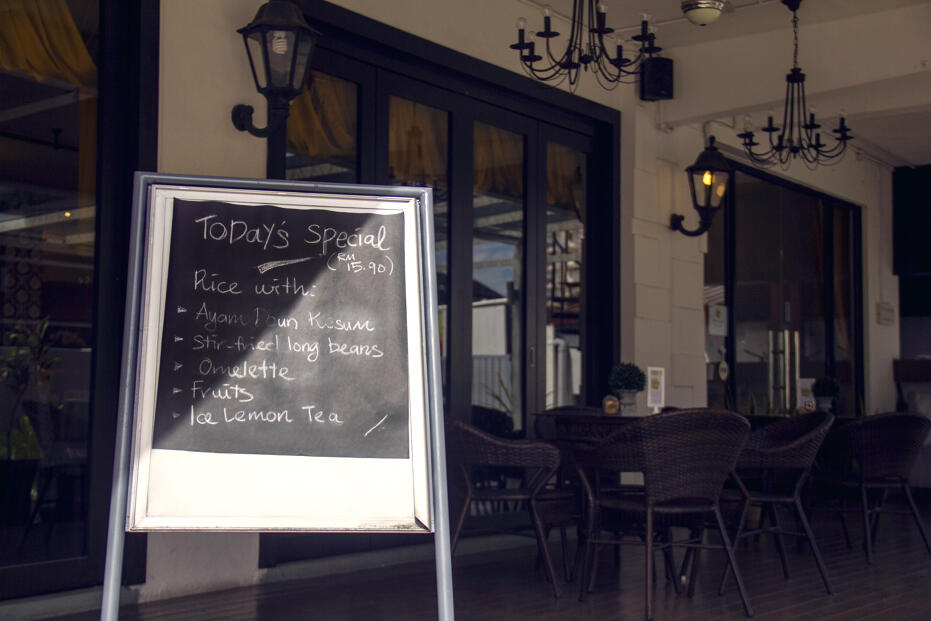 Today's Special
(RM 15.90)
Rice with:
Ayam Daun Kesum
Stir-fried long beans
Omelette
Fruits
Ice Lemon Tea